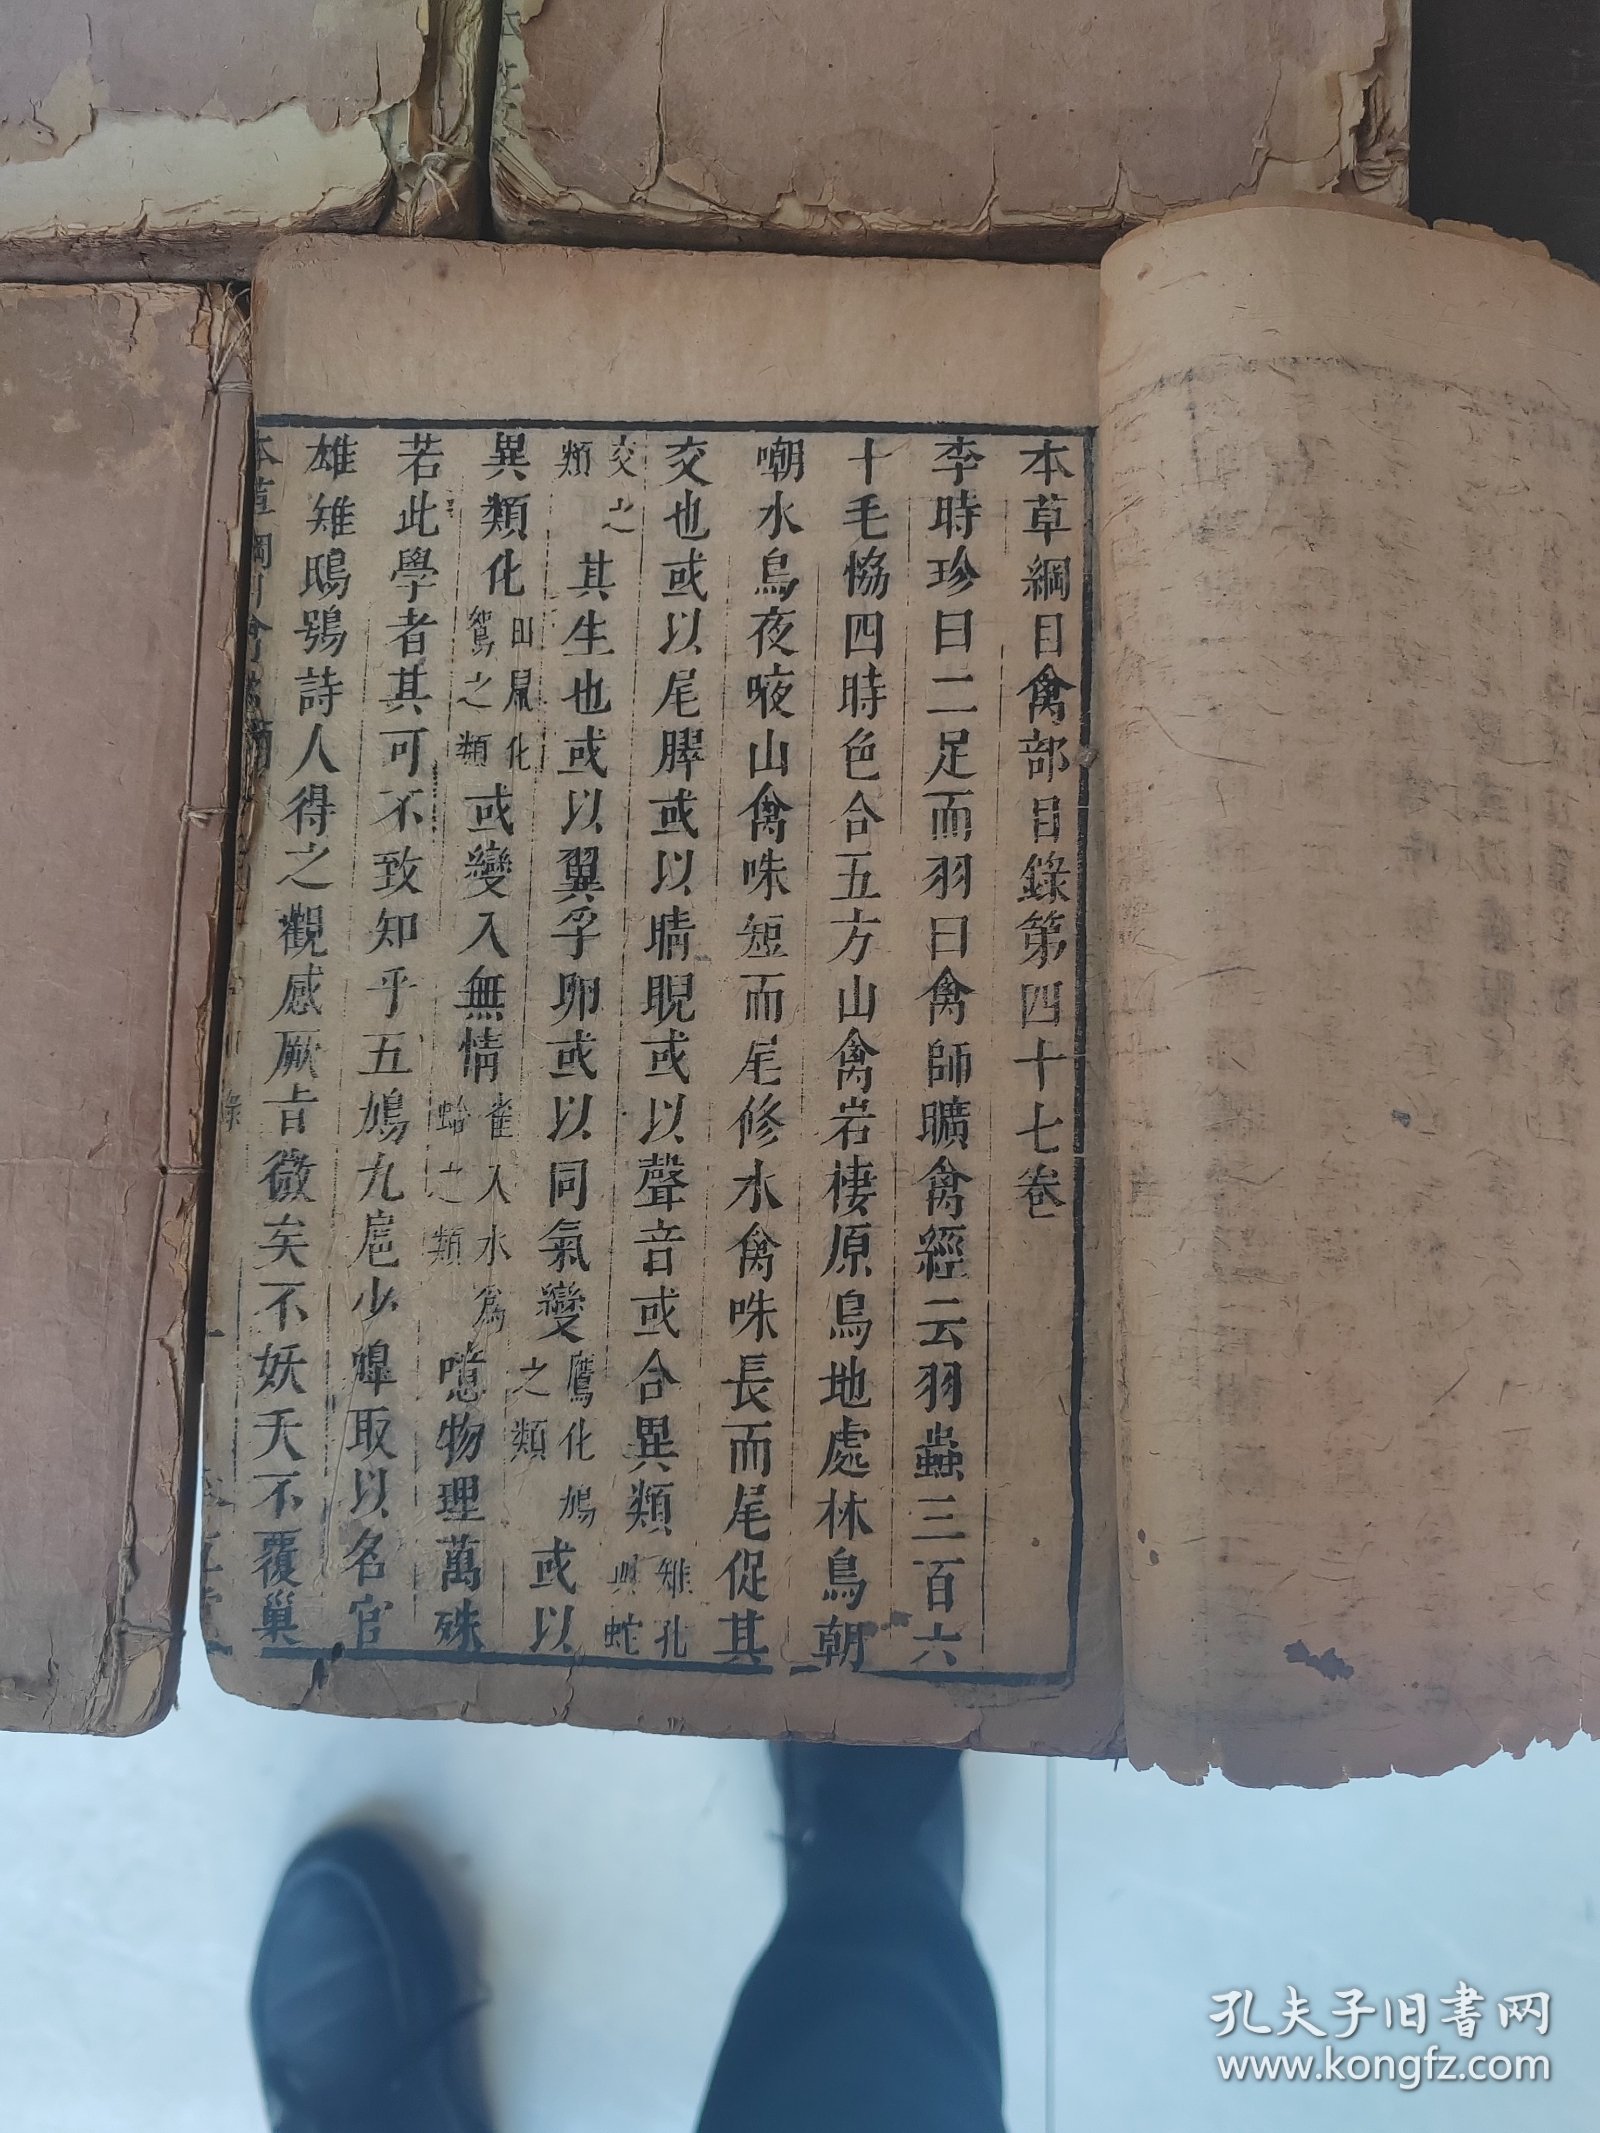 本草綱目禽部目錄第四十七卷
李時珍曰二足而羽曰禽師曠禽經云羽蟲三百六
十毛恊四時色合五方山禽岩棲原鳥地處林鳥朝
嘲水鳥夜㖡山禽咮短而尾修水禽咮長而尾促其
交也或以尾臎或以睛睨或以聲音或合異類雉孔與蛇
交之類其生也或以翼孚卵或以同氣變鷹化鳩之類或以
異類化田鼠化鴽之類或變入無情雀入水爲蛤之類噫物理萬殊
若此學者其可不致知乎五鳩九扈少皥取以名官
雄雉鴟鴞詩人得之觀感厥旨微矣不妖夭不覆巢
孔夫子旧书网
www.kongfz.com